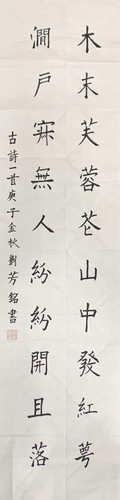 木末芙蓉花山中發紅萼
澗戶寂無人紛紛開且落
古詩一首庚子金秋劉芳銘書